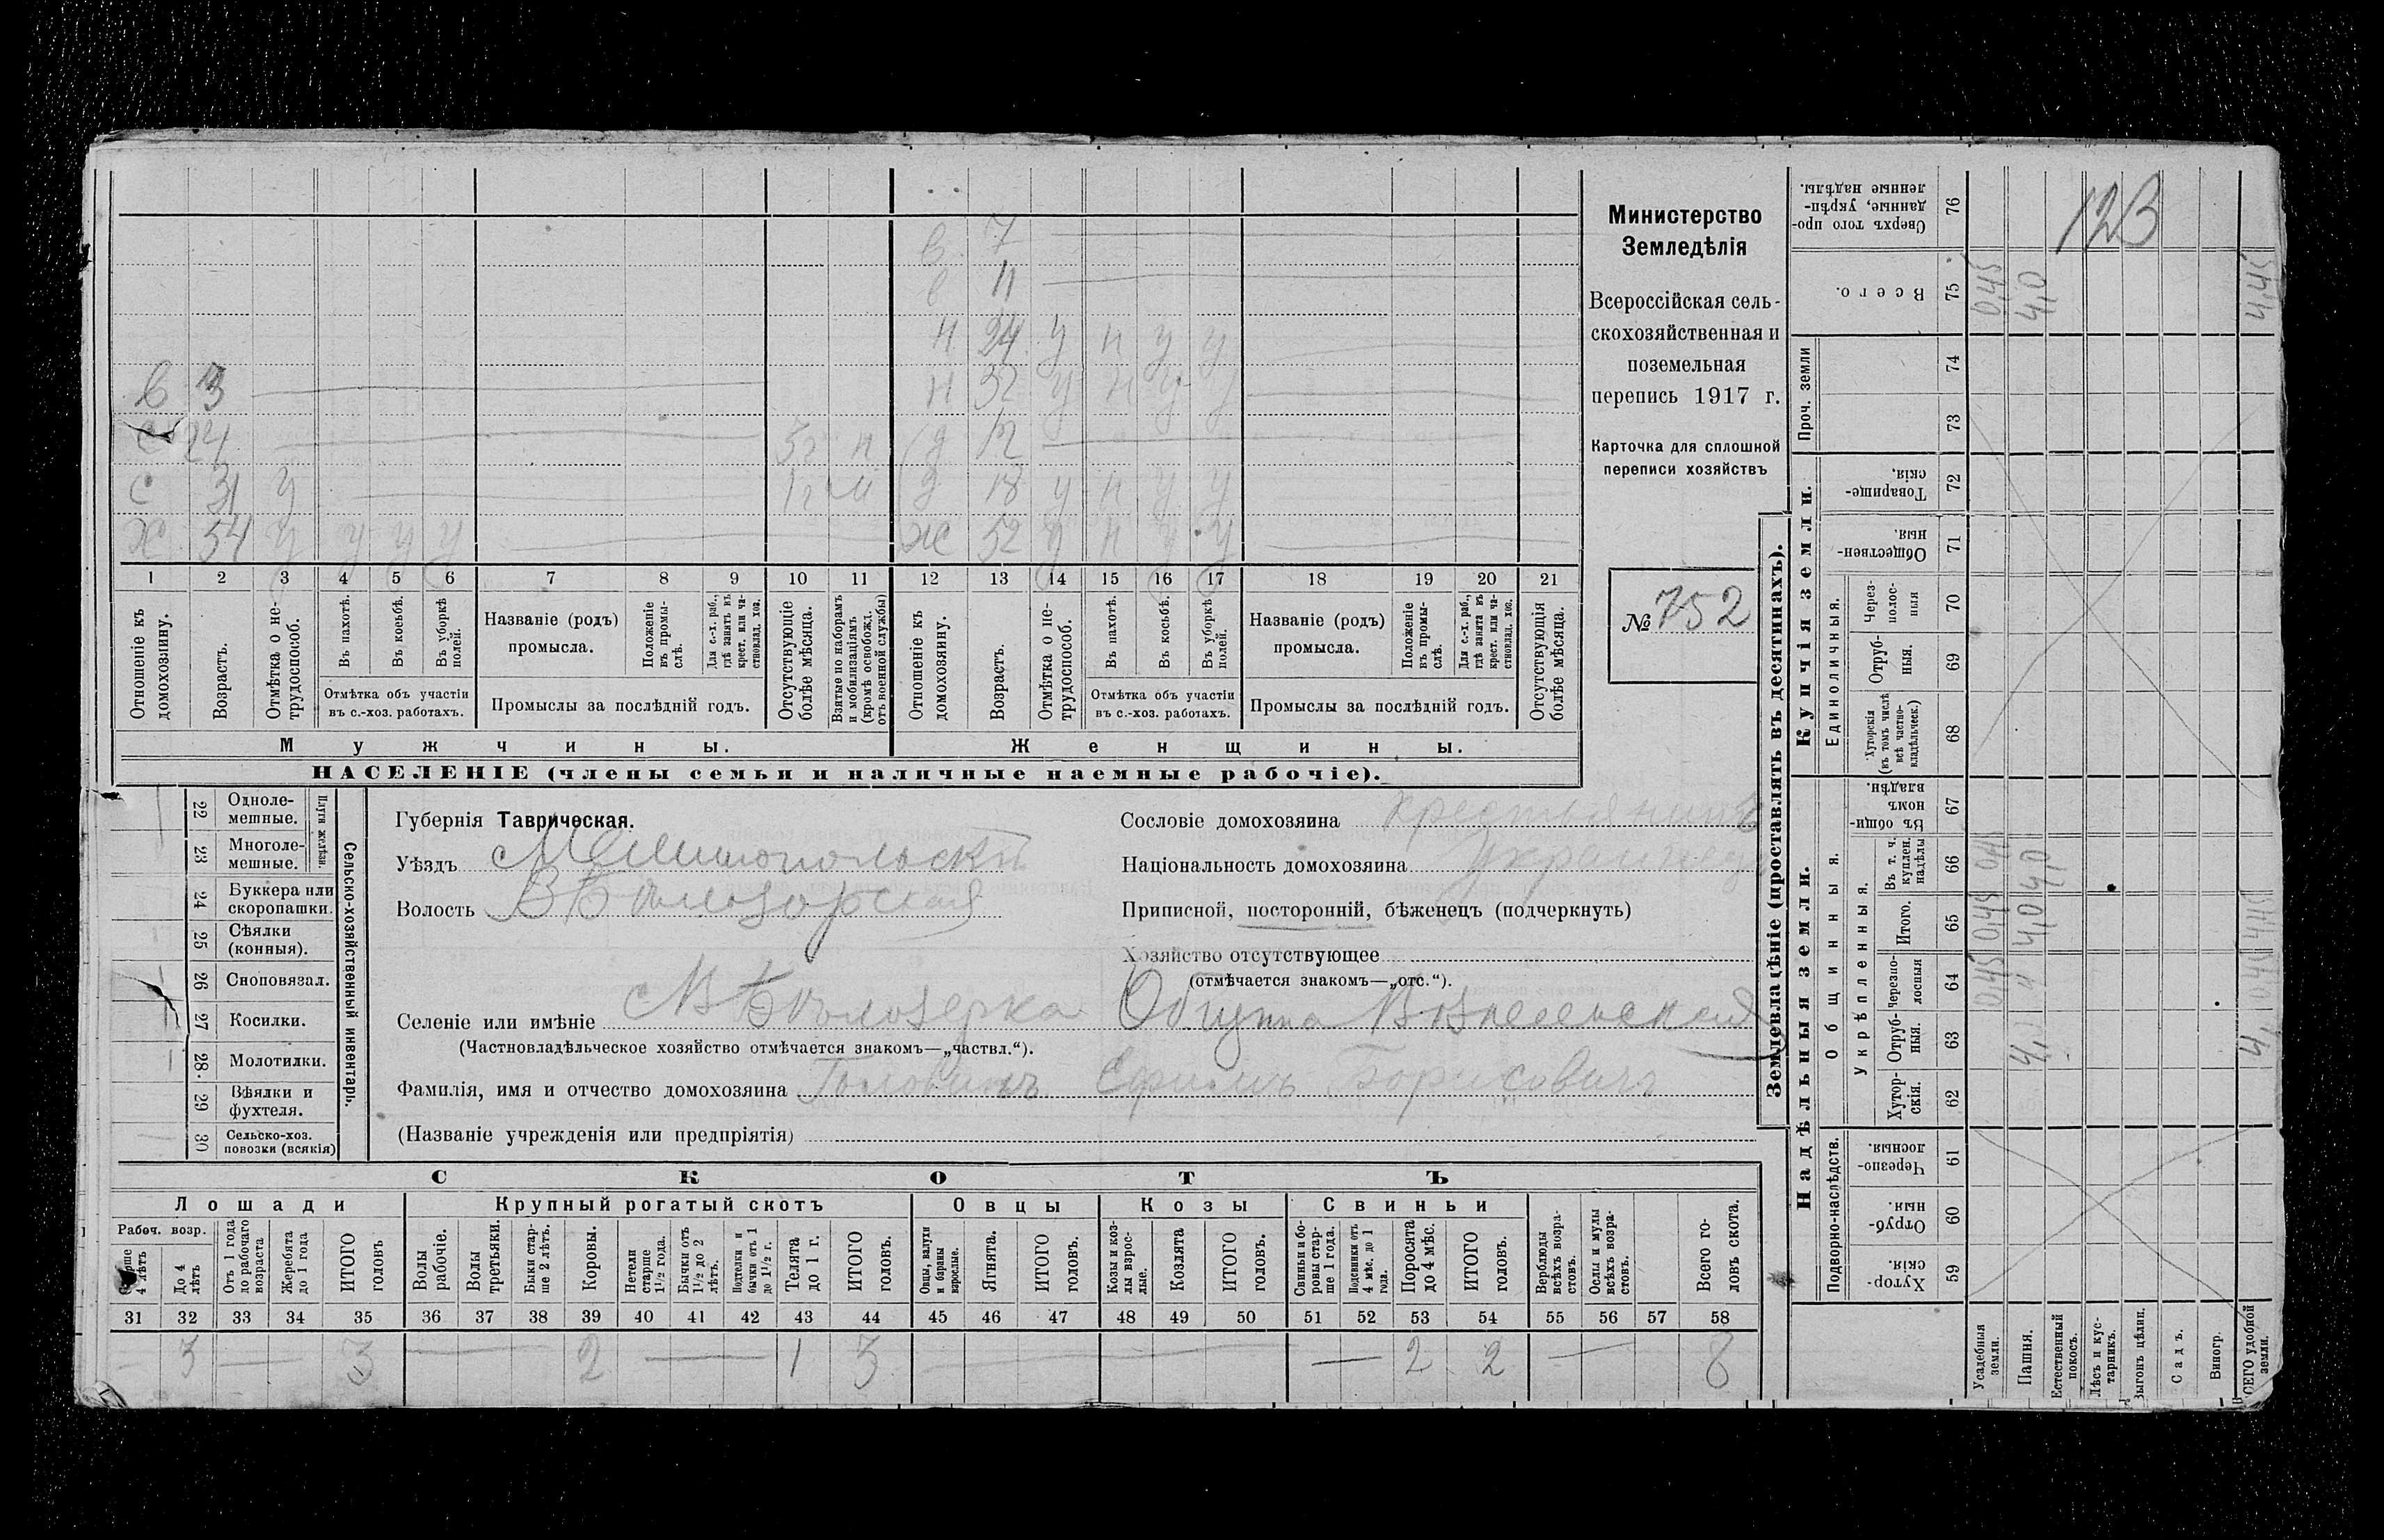 в 7
в 11
н 24 у н у у
в 3 н 32 у н у у
с 24 3г н д 12
с 31 у 1г н д 18 у н у у
ж 54 у у у у ж 52 у н у у
1 2 3 4 5 6 7 8 9 10 11 12 13 14 15 16 17 18 19 20 21
Отношеніе къ домохозяину.
Возрастъ.
Отмѣтка о нетрудоспособ.
Въ пахотѣ.
Въ косьбѣ.
Въ уборкѣ полей.
Отмѣтка объ участіи въ с.-хоз. работахъ.
Названіе (родъ) промысла.
Положеніе въ промыслѣ.
Для с.-х. раб., гдѣ занятъ въ крест. или частновлад. хоз.
Промыслы за послѣдній годъ.
Отсутствующіе болѣе мѣсяца.
Взятые по наборамъ и мобилизаціямъ (кромѣ освобожд. отъ военной службы)
Отношеніе къ домохозяину.
Возрастъ.
Отмѣтка о нетрудоспособ.
Въ пахотѣ.
Въ косьбѣ.
Въ уборкѣ полей.
Отмѣтка объ участіи въ с.-хоз. работахъ.
Названіе (родъ) промысла.
Положеніе въ промыслѣ.
Для с.-х. раб., гдѣ занята въ крест. или частновлад. хоз.
Промыслы за послѣдній годъ.
Отсутствующія болѣе мѣсяца.
Мужчины. Женщины.
НАСЕЛЕНІЕ (члены семьи и наличные наемные рабочіе).
Министерство
Земледѣлія
Всероссійская сель-
скохозяйственная и
поземельная
перепись 1917 г.
Карточка для сплошной
переписи хозяйствъ
№ 752
22 Одноле-мешные.
23 Многоле-мешные.
Плуги желѣзн.
24 Буккера или скоропашки.
25 Сѣялки (конныя).
26 Сноповязал.
27 Косилки.
28. Молотилки.
29 Вѣялки и фухтеля.
30 Сельско-хоз. повозки (всякія)
Сельско-хозяйственный инвентарь.
Губернія Таврическая.
Уѣздъ Мелитопольскій
Волость В Бѣлозорская
Селеніе или имѣніе В Бѣлозерка
(Частновладѣльческое хозяйство отмѣчается знакомъ—„частвл.“).
Сословіе домохозяина крестьянинъ
Національность домохозяина Украинецъ
Приписной, посторонній, бѣженецъ (подчеркнуть)
Хозяйство отсутствующее
(отмѣчается знакомъ—„отс.“).
Община Вознесенская
Фамилія, имя и отчество домохозяина Головинъ Ефимъ Борисовичъ
(Названіе учрежденія или предпріятія)
СКОТЪ
Лошади Крупный рогатый скотъ Овцы Козы Свиньи
Рабоч. возр.
Старше 4 лѣтъ
До 4 лѣтъ
Отъ 1 года до рабочаго возраста
Жеребята до 1 года
ИТОГО головъ
Волы рабочіе.
Волы третьяки.
Быки стар-ше 2 лѣтъ.
Коровы.
Нетели старше 1½ года.
Бычки отъ 1½ до 2 лѣтъ.
Подтелки и бычки отъ 1 до 1½ г.
Телята до 1 г.
ИТОГО головъ.
Овцы, валухи и бараны взрослые.
Ягнята.
ИТОГО головъ.
Козы и коз-лы взрос-лые.
Козлята
ИТОГО головъ.
Свиньи и бо-ровы стар-ше 1 года.
Подсвинки отъ 4 мѣс. до 1 года.
Поросята до 4 мѣс.
ИТОГО головъ.
Верблюды всѣхъ возра-стовъ.
Ослы и мулы всѣхъ возра-стовъ.
Всего го-ловъ скота.
31 32 33 34 35 36 37 38 39 40 41 42 43 44 45 46 47 48 49 50 51 52 53 54 55 56 57 58
— 3 — 3 — 2 — 1 3 — — 2 2 — 8
Землевладѣніе (проставлять въ десятинахъ).
Надѣльныя земли. Купчія земли.
Подворно-наслѣдств.
Общинныя.
Укрѣпленныя.
Единоличныя.
Проч. земли
Хутор-скія. 59
Отруб-ныя. 60
Черезпо-лосныя. 61
Хутор-скія. 62
Отруб-ныя. 63
Черезпо-лосныя 64
Итого. 65
Въ т. ч. куплен. надѣлы 66
Въ общи-номъ владѣн. 67
Хуторскія (въ томъ числѣ всѣ частно-владѣльческ.) 68
Отруб-ныя. 69
Через-полос-ныя 70
Обществен-ныя. 71
Товарище-скія. 72
73
74
Всего. 75
Сверхъ того про-данные, укрѣп-ленные надѣлы. 76
Усадебныя земли. 0,45 0,45 0,45
Пашня. 4,0 4,0 4,0
Естественный покосъ.
Лѣсъ и кус-тарникъ.
Выгонъ цѣлин.
Садъ.
Виногр.
ВСЕГО удобной земли. 4,45
123